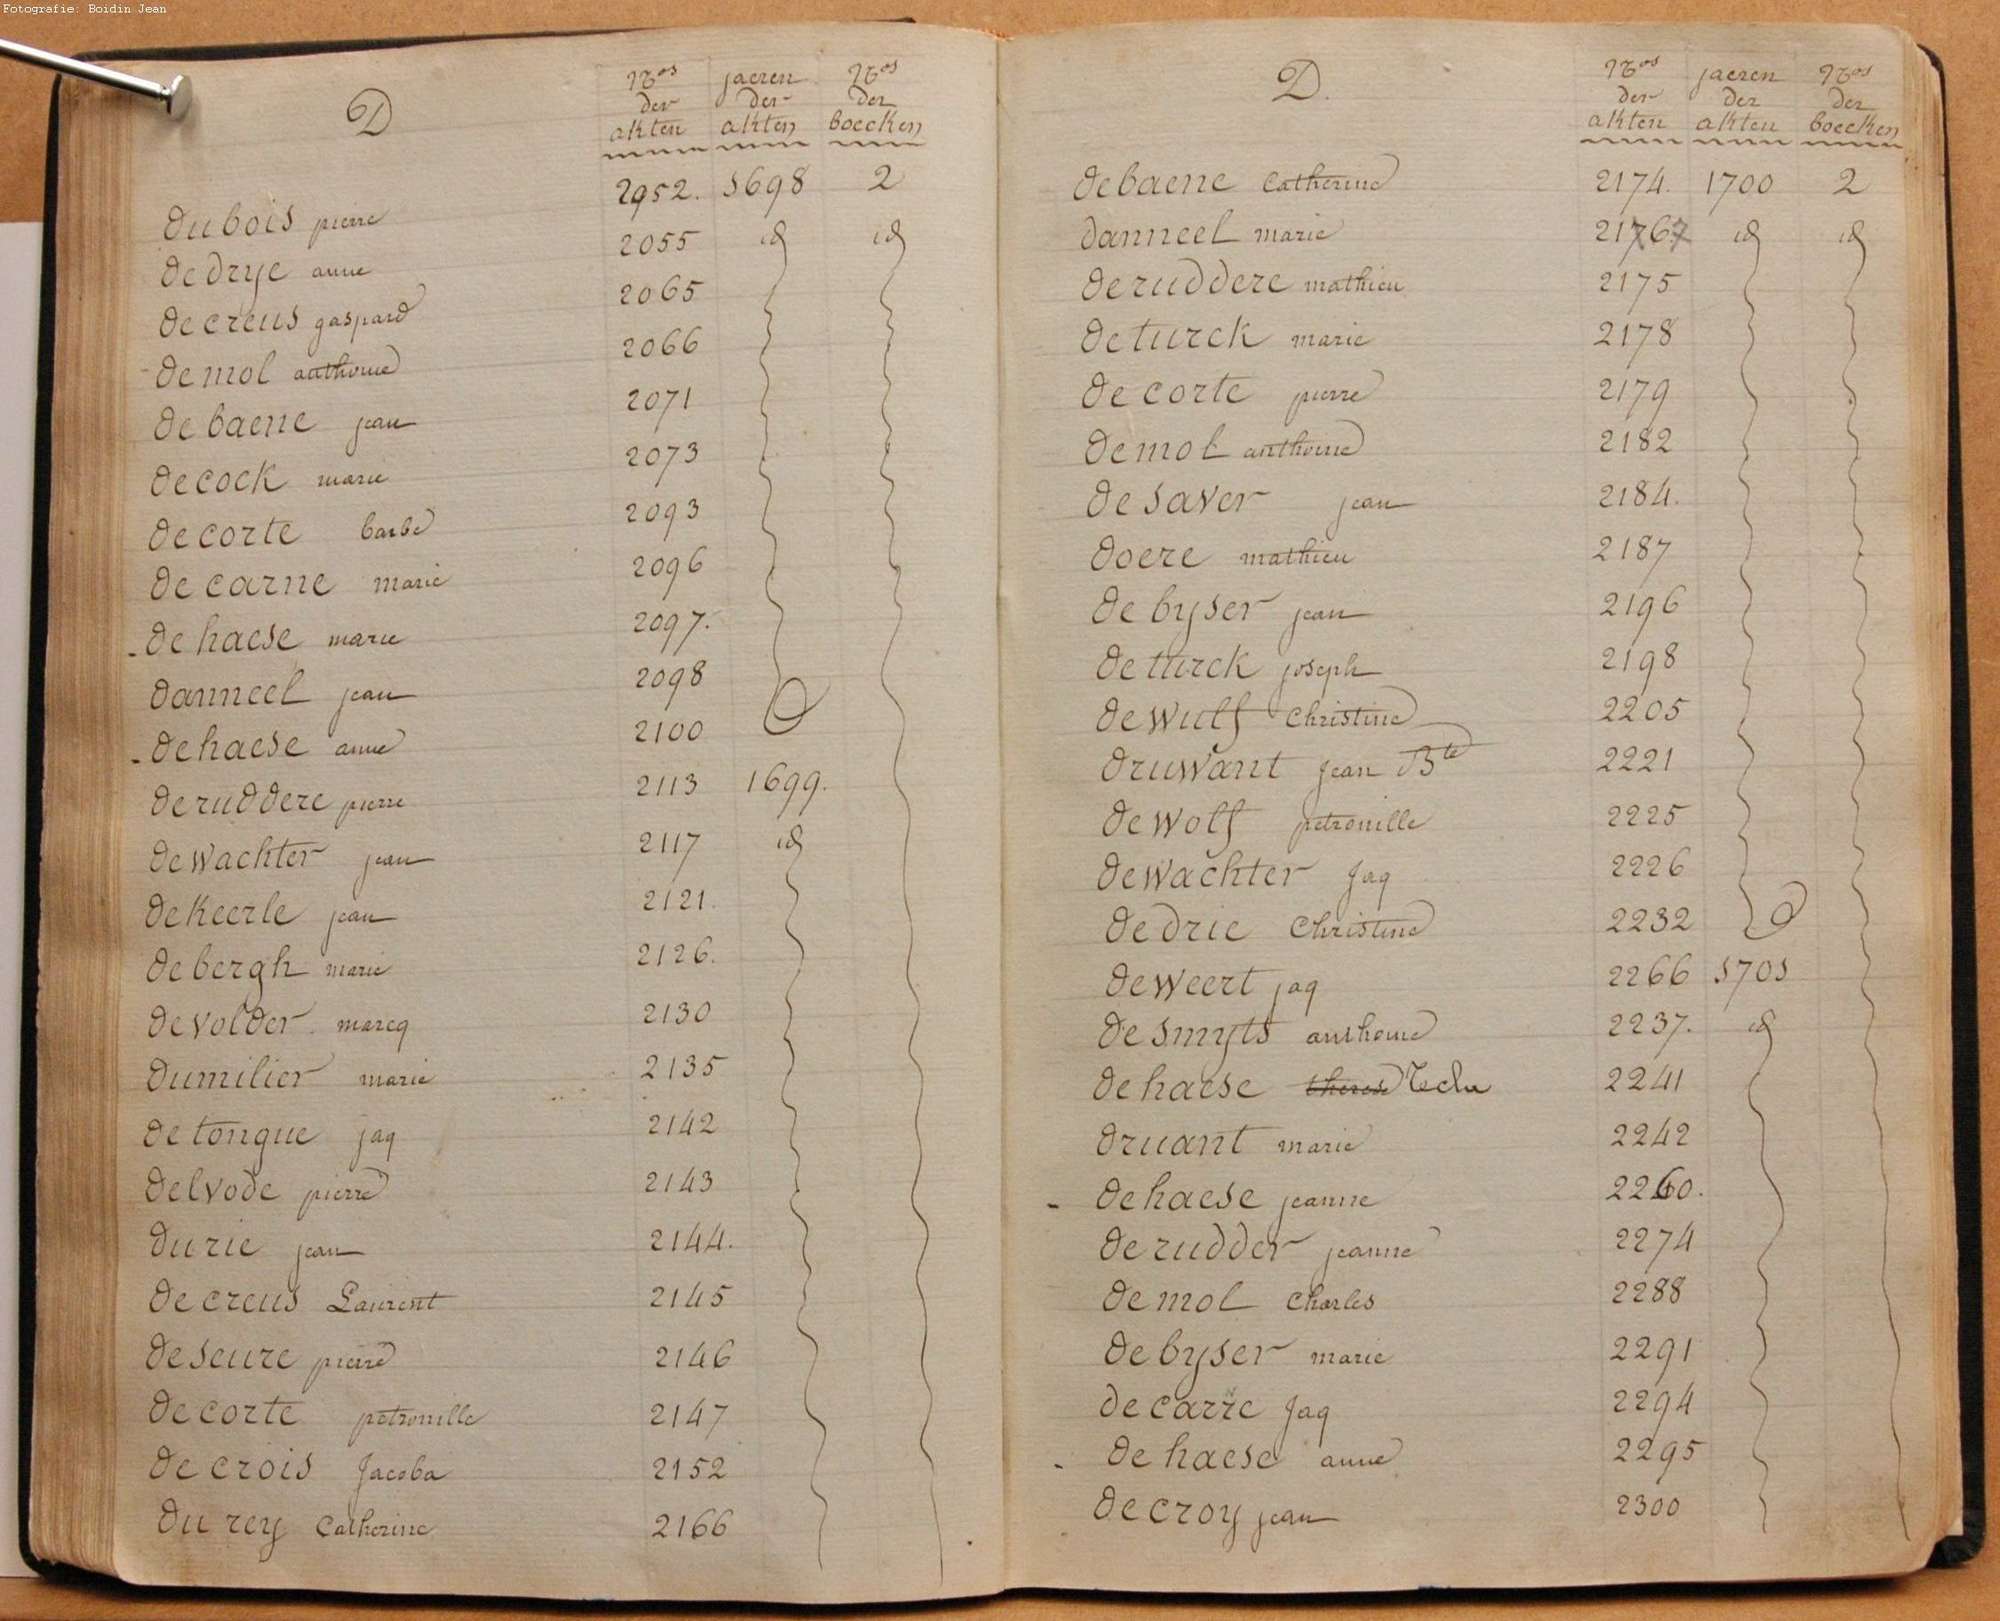 Fotografie: Boidin Jean
D
Nos der akten
jaeren der akten
Nos der boecken
dubois pierre 2052. 1698 2
dedrye anne 2055 id id
decreus gaspard 2065
demol anthoine 2066
debaene jean 2071
decock marie 2073
decorte barbe 2093
decarne marie 2096
dehaese marie 2097.
danneel jean 2098
dehaese anne 2100
deruddere pierre 2113 1699.
dewachter jean 2117 id
dekeerle jean 2121.
debergh marie 2126.
devolder marcq 2130
dumilier marie 2135
detongue jaq 2142
delvode pierre 2143
durie jean 2144.
decreus Laurent 2145
deseure pierre 2146
decorte petronille 2147
decrois Jacoba 2152
durey Catherine 2166
D.
Nos der akten
jaeren der akten
Nos der boecken
debaene Catherine 2174. 1700 2
danneel marie 2167 id id
deruddere mathieu 2175
deturck marie 2178
decorte pierre 2179
demol anthoine 2182
desaver jean 2184.
doere mathieu 2187
debyser jean 2196
deturck joseph 2198
dewulf Christine 2205
druwant jean Bte 2221
dewolf petronille 2225
dewachter Jaq 2226
dedrie Christine 2232
deweert jaq 2266 1701
desmyts anthoine 2237. id
dehaese therese Tecla 2241
druant marie 2242
dehaese jeanne 2260.
derudder jeanne 2274
demol Charles 2288
debyser marie 2291
decarne Jaq 2294
dehaese anne 2295
decroy jean 2300